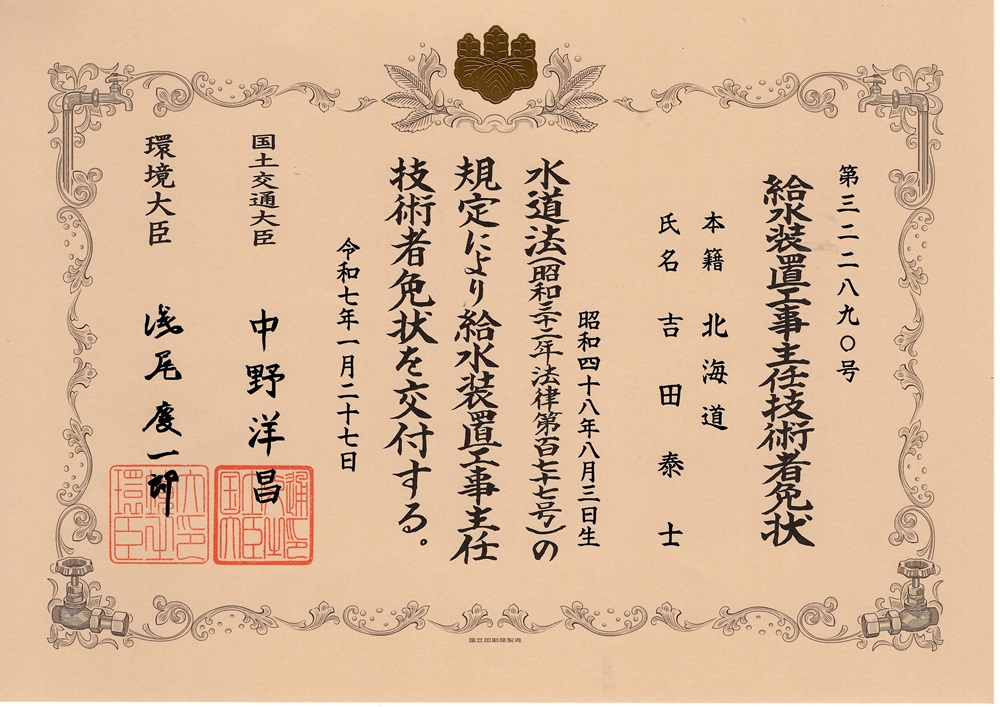 第三二二八九〇号
給水装置工事主任技術者免状
本籍 北海道
氏名 吉田泰士
昭和四十八年八月三日生
水道法(昭和三十二年法律第百七十七号)の
規定により給水装置工事主任
技術者免状を交付する。
令和七年一月二十七日
国土交通大臣 中野洋昌
環境大臣 浅尾慶一郎
国立印刷局製造